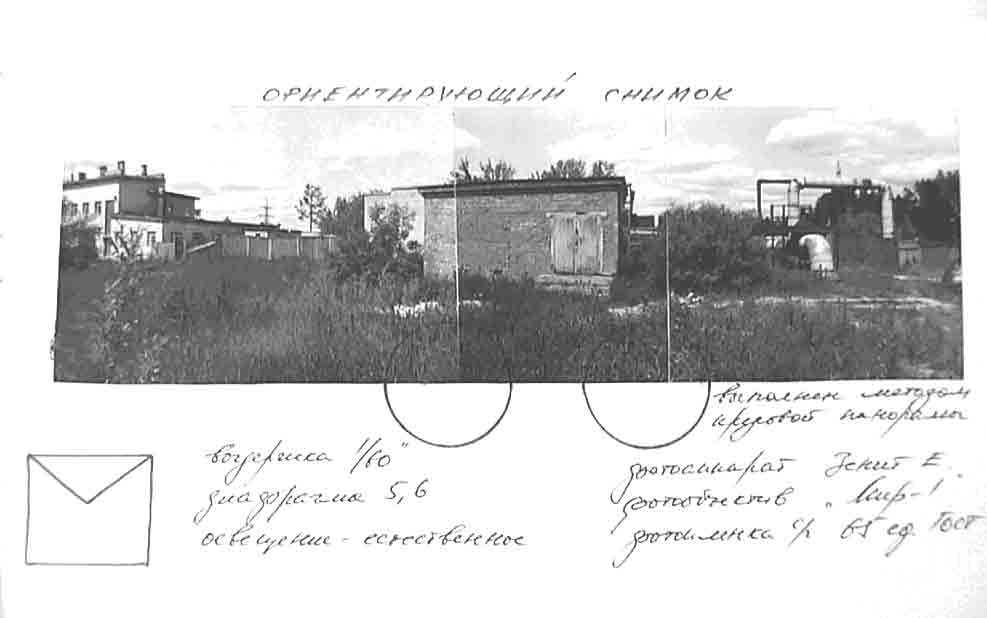 ОРИЕНТИРУЮЩИЙ СНИМОК
выполнен методом
круговой панорамы
выдержка 1/60"
диафрагма 5,6
освещение - естественное
фотоаппарат Зенит Е.
фотообъектив "Мир-1"
фотопленка ч/ 65 ед. Гост